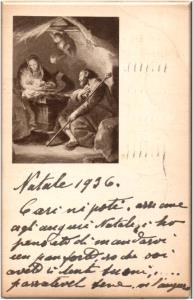 Natale 1936.
Cari nipoti, assieme
agli auguri Natale, ho
pensato di mandarvi
un panforte, so che voi
avete i denti buoni, ....